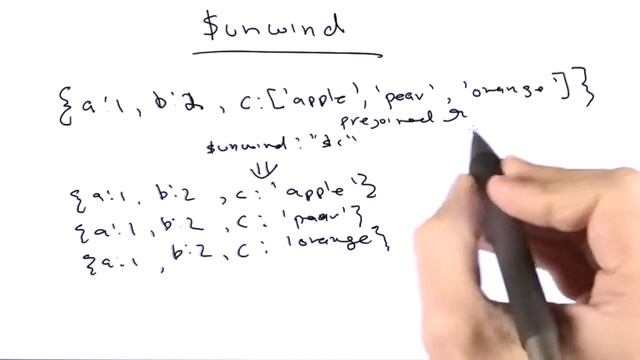 $unwind
{a:1, b:2, c:['apple', 'pear', 'orange']}
prejoined
$unwind: "$c"
{a:1, b:2, c: 'apple'}
{a:1, b:2, c: 'pear'}
{a:1, b:2, c: 'orange'}